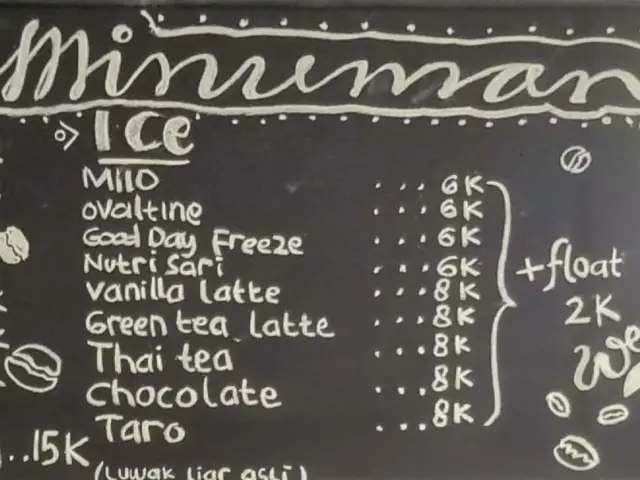 Minuman
ICE
Milo ... 6K
ovaltine ... 6K
Good Day Freeze ... 6K
Nutri Sari ... 6K
Vanilla latte ... 8K
Green tea latte ... 8K
Thai tea ... 8K
Chocolate ... 8K
Taro ... 8K
+float
2K
We
..15K
(Luwak liar asli)